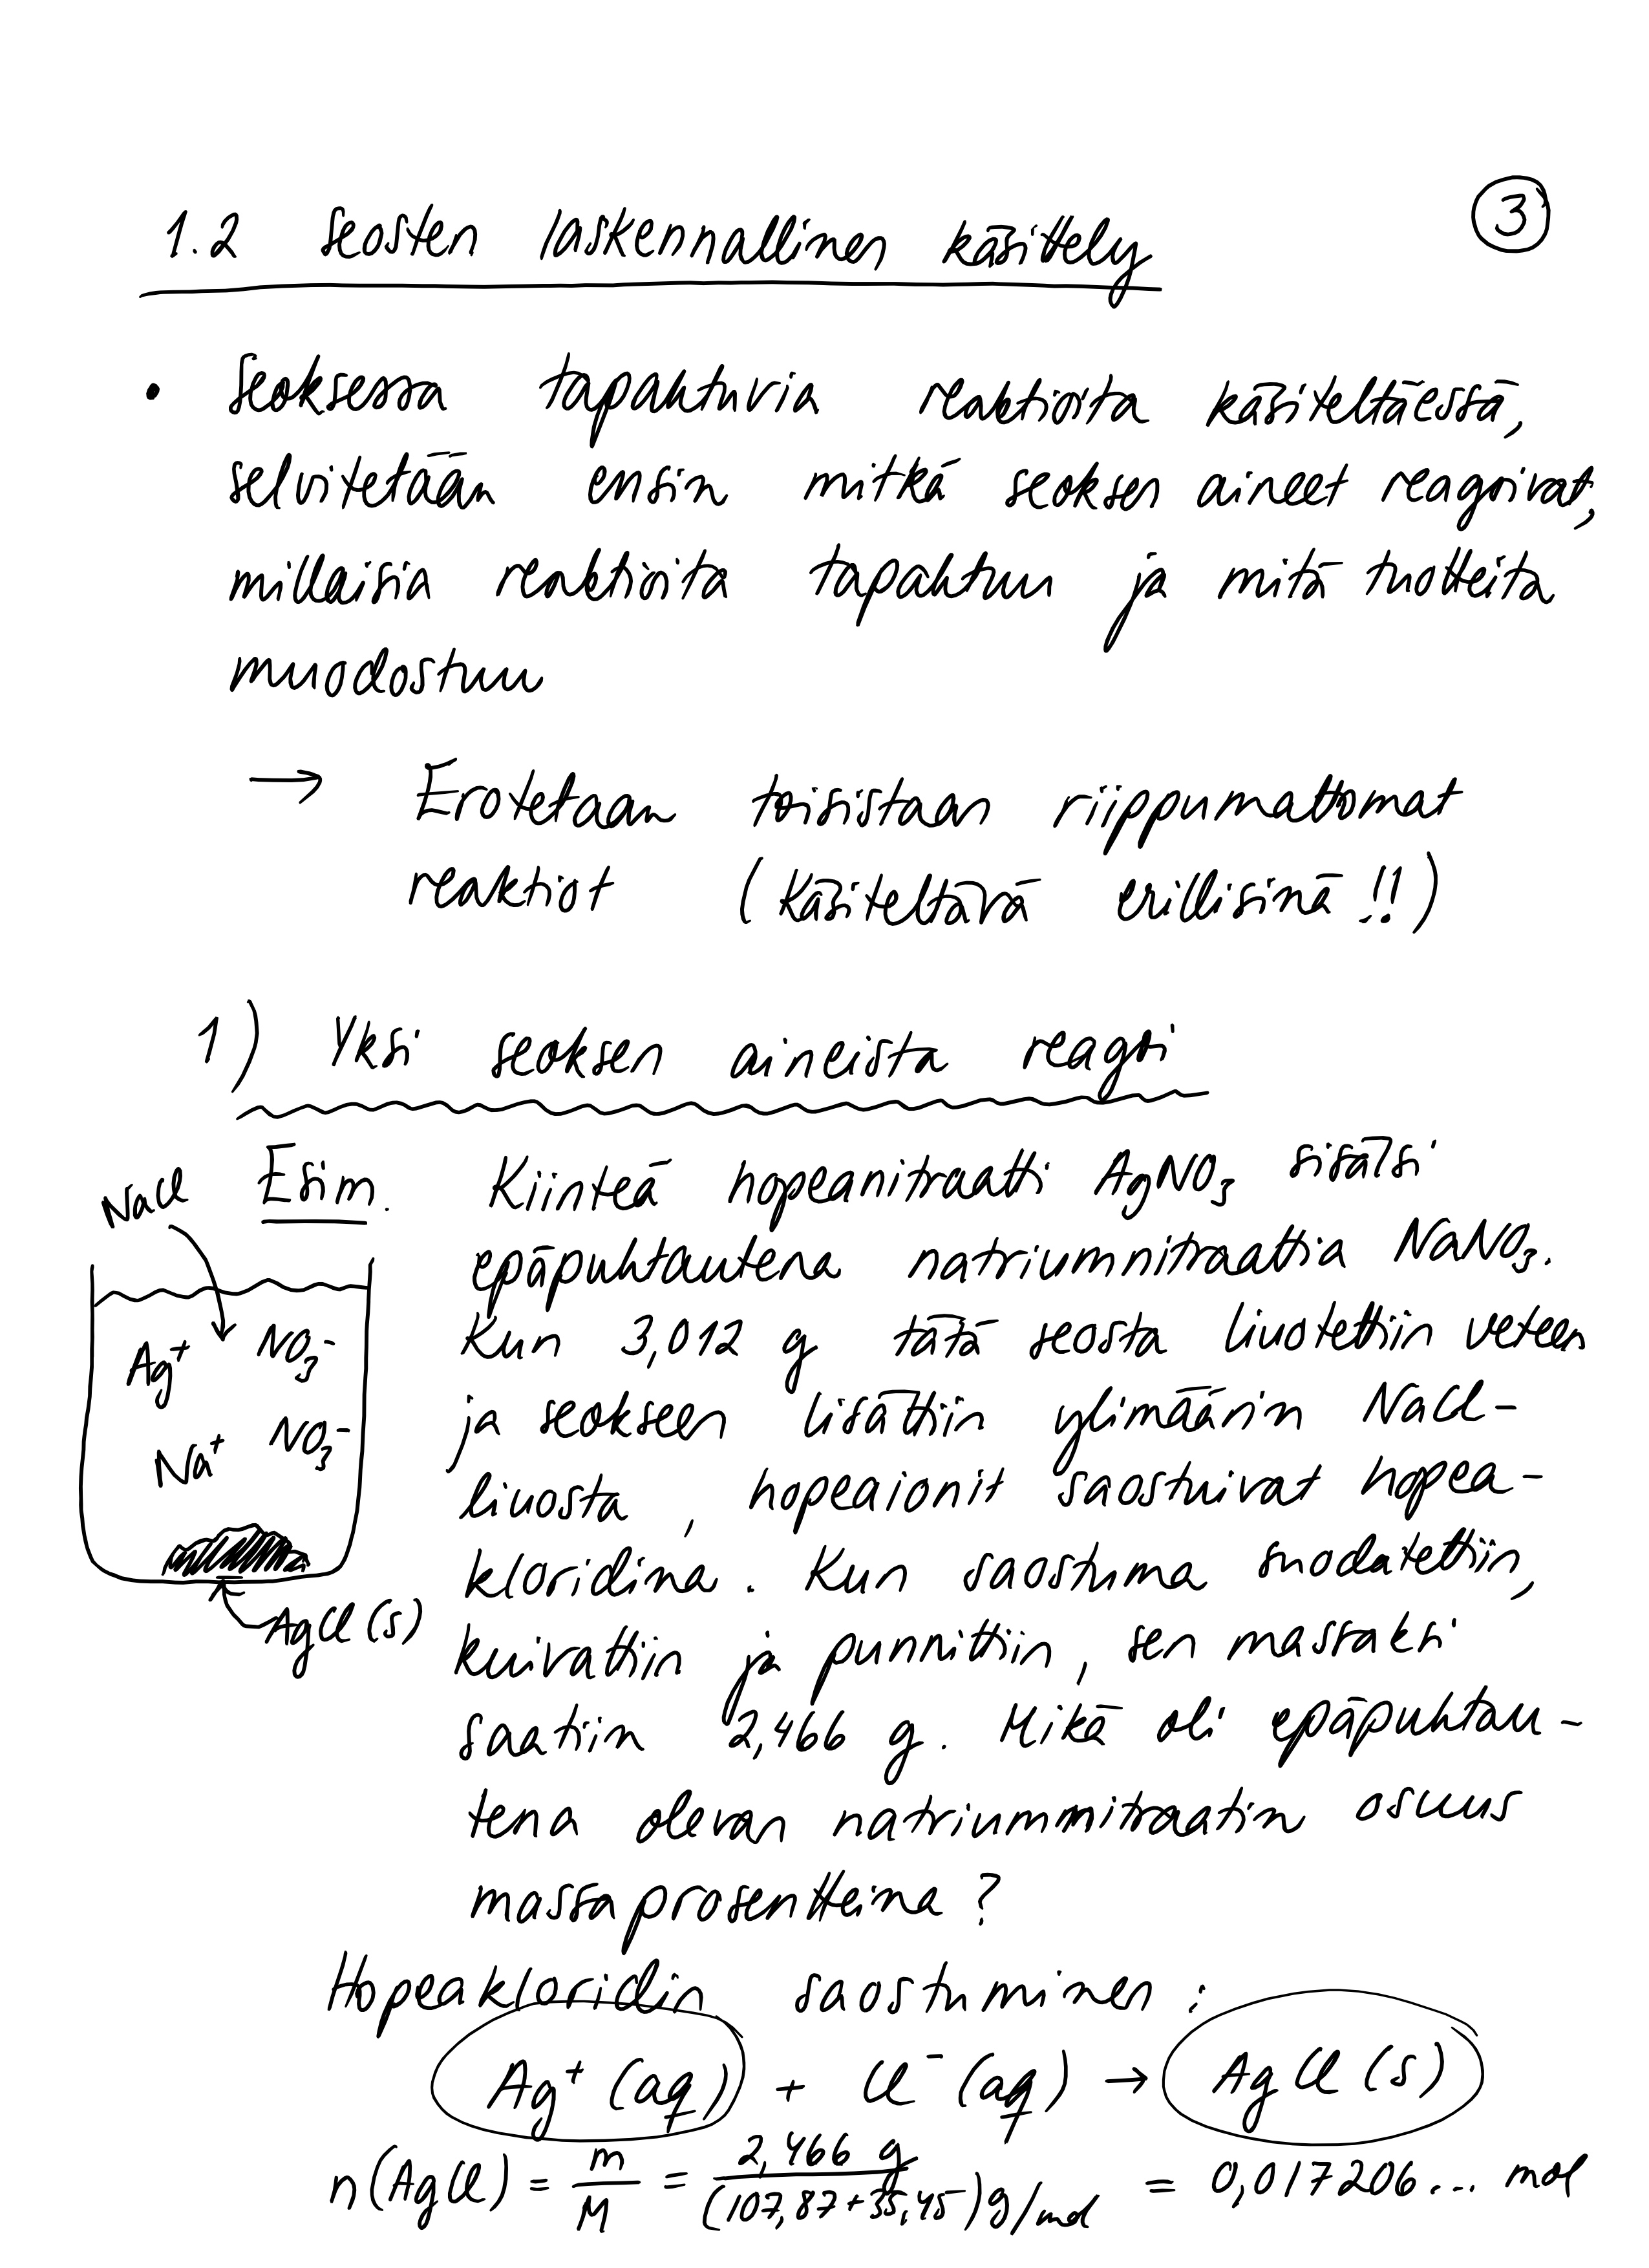 1.2 Seosten laskennallinen käsittely
3
• Seoksessa tapahtuvia reaktioita käsiteltäessä,
selvitetään ensin mitkä seoksen aineet reagoivat,
millaisia reaktioita tapahtuu ja mitä tuotteita
muodostuu
→ Erotetaan toisistaan riippumattomat
reaktiot (Käsiteltävä erillisinä !!)
1) Yksi seoksen aineista reagoi
Esim. Kiinteä hopeanitraatti AgNO₃ sisälsi
epäpuhtautena natriumnitraattia NaNO₃.
Kun 3,012 g tätä seosta liuotettiin veteen
ja seokseen lisättiin ylimäärin NaCl-
liuosta, hopeaionit saostuivat hopea-
kloridina. Kun saostuma suodatettiin,
kuivattiin ja punnittiin, sen massaksi
saatiin 2,466 g. Mikä oli epäpuhtau-
tena olevan natriumnitraatin osuus
massaprosentteina?
NaCl
Ag⁺ NO₃⁻
Na⁺ NO₃⁻
AgCl (s)
Hopeakloridin saostuminen:
Ag⁺ (aq) + Cl⁻ (aq) → AgCl (s)
n(AgCl) = m/M = 2,466 g / (107,87+35,45) g/mol = 0,017206... mol